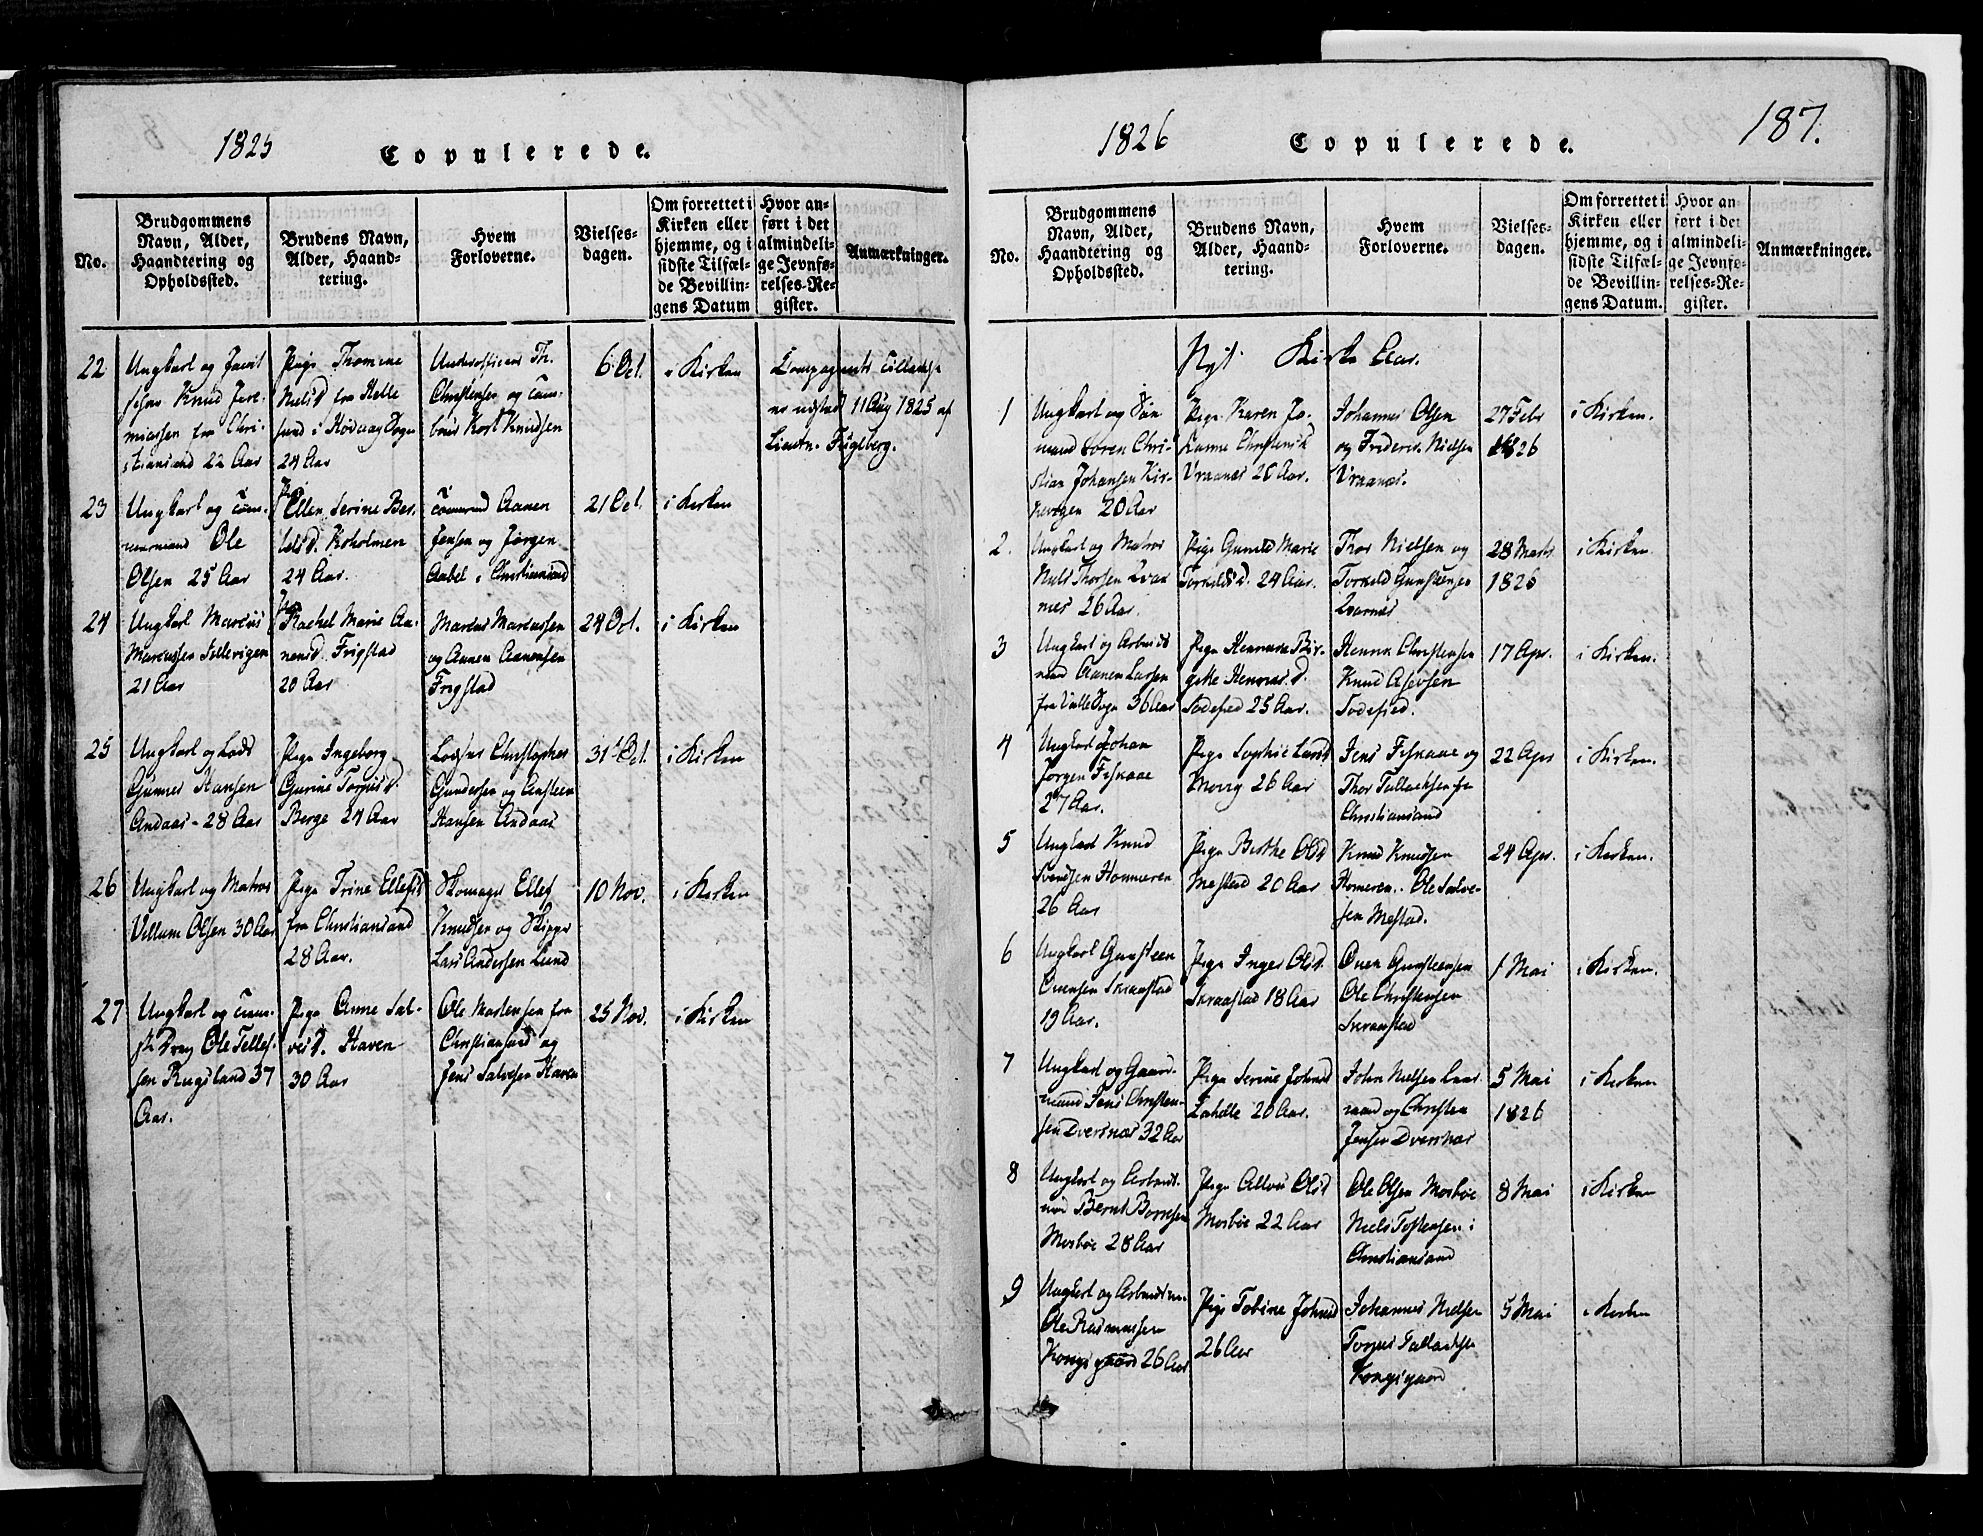 1825
Copulerede.
No.
Brudgommens
Navn, Alder,
Haandtering og
Opholdssted.
Brudens Navn,
Alder, Haand-
tering.
Hvem
Forloverne.
Vielses-
dagen.
Om forrettet i
Kirken eller
hjemme, og i
sidste Tilfæl-
de Bevillin-
gens Datum
Hvor an-
ført i det
almindeli-
ge Jevnfø-
relses-Re-
gister.
Anmærkninger.
22
Ungkarl og
Knud Jere-
miassen fra Chri-
stiansand 22 Aar
Pige Thomine
Nielsd fra Helle
sund i Høivaag Sogn
24 Aar
Underofficeer Th.
Christensen og
Knudsen
6 Oct.
i Kirken
Compagniets Tilladelse
er udstæd 11 Aug 1825 af
Lieutn. Fuglberg.
23
Ungkarl og Tøm-
mermand Ole
Olsen 25 Aar
Pige
Ellen Serine Ber-
telsd. Koholmen
24 Aar.
Tømmermd Aanen
Jensen og Jørgen
Aabel i Christiansand
21 Oct.
i Kirken
24
Ungkarl Marcus
Marcussen Tellevigen
21 Aar
Pige
Rachel Marie Aa-
nensd. Frigstad
20 Aar
Marcus Marcussen
og Aanen Aanensen
Frigstad
24 Oct.
i Kirken
25
Ungkarl og Lods
Gunner Hansen
Andaas - 28 Aar
Pige Ingeborg
Gurine Torjusd.
Berge 24 Aar
Lodser Christopher
Gundersen og Ansteen
Hansen Andaas
31t Oct.
i Kirken
26
Ungkarl og Matros
Villum Olsen 30 Aar
Pige Trine Ellefsd
fra Christiansand
28 Aar.
Skomager Ellef
Knudsen og Skipper
Lars Andersen Lund
10 Nov.
i Kirken
27
Ungkarl og
Ole Tellef-
sen Rugsland 37
Aar.
Pige Anne Sal-
vesd. Haven
30 Aar
Ole Mortensen fra
Christiansand og
Jens Salvesen Haven
25 Nov.
i Kirken
1826
Copulerede.
187.
No.
Brudgommens
Navn, Alder,
Haandtering og
Opholdssted.
Brudens Navn,
Alder, Haand-
tering.
Hvem
Forloverne.
Vielses-
dagen.
Om forrettet i
Kirken eller
hjemme, og i
sidste Tilfæl-
de Bevillin-
gens Datum.
Hvor an-
ført i det
almindeli-
ge Jevnfø-
relses-Re-
gister.
Anmærkninger.
Nyt Kirke Aar.
1
Ungkarl og Søe
mand Søren Chri-
stian Johansen Kir-
kevigen 20 Aar
Pige Karen Jo-
hanne Christensd
Vraanæs 20 Aar.
Johannes Olsen
og Frederic Nielsen
Vraanæs.
27 Febr
1826
i Kirken.
2.
Ungkarl og Matros
Niels Thorsen Qvar
næs 26 Aar.
Pige Gunild Marie
Torkildsd. 24 Aar.
Thor Nielsen og
Torkild Gunstensen
Qvarnes
28 Marts
1826
i Kirken
3
Ungkarl og Arbeids
mand Aanen Larsen
fra Valle Sogn 36 Aar
Pige Henrikke Bir-
gitte Henriks. d.
Todefied 25 Aar.
Henrik Christensen
Knud Asevsen
Todefied.
17 Apr.
i Kirken.
4
Ungkarl Johan
Jørgen Fiskaae
27 Aar.
Pige Sophie Larsd
26 Aar
Jens Fiskaae og
Thor Tallacksen fra
Christiansand
22 Apr
i Kirken.
5
Ungkarl Knud
Svendsen Hommeren
26 Aar
Pige Berthe Olsd
Mestad 20 Aar
Knud Knudsen
Homeren. Ole Salve-
sen Mestad.
24 Apr.
i Kirken.
6
Ungkarl Gunsteen
Ouensen Straastad
19 Aar.
Pige Inger Olsd.
Straastad 18 Aar
Ouen Gunsteensen
Ole Christensen
Straastad
1 Mai
i Kirken.
7
Ungkarl og Gaard-
mand Jens Christen-
sen Dversnæs 32 Aar
Pige Serine Johnsd
Lahelle 20 Aar.
John Nielsen
og Christen
Jensen Dversnæs
5 Mai
1826
i Kirken
8
Ungkarl og Arbeids-
md Bernt Borresen
Mosbøe 28 Aar
Pige Olsd
Mosbøe 22 Aar
Ole Olsen Mosbøe
Niels Tostensen i
Christiansand
8 Mai
i Kirken
9
Ungkarl og Arbeidsm.
Ole Rasmussen
Kongsgaard 26 Aar
Pige Tobine Johnsd
26 Aar
Johannes Nielsen
Torjus Tallacksen
Kongsgaard
5 Mai
i Kirken